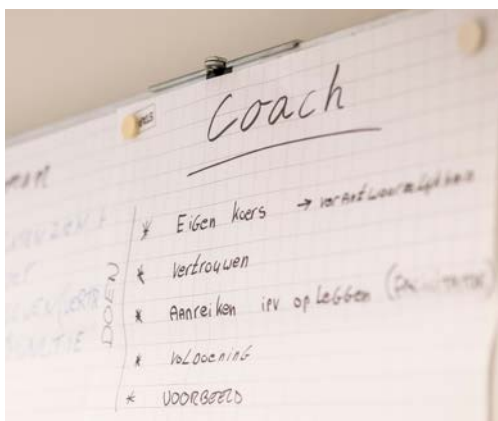 Coach
* Eigen koers → verantwoordelijkheid
* Vertrouwen
* Aanreiken ipv opleggen (FACILITATOR)
* VOLDOENING
* VOORBEELD
DOEN